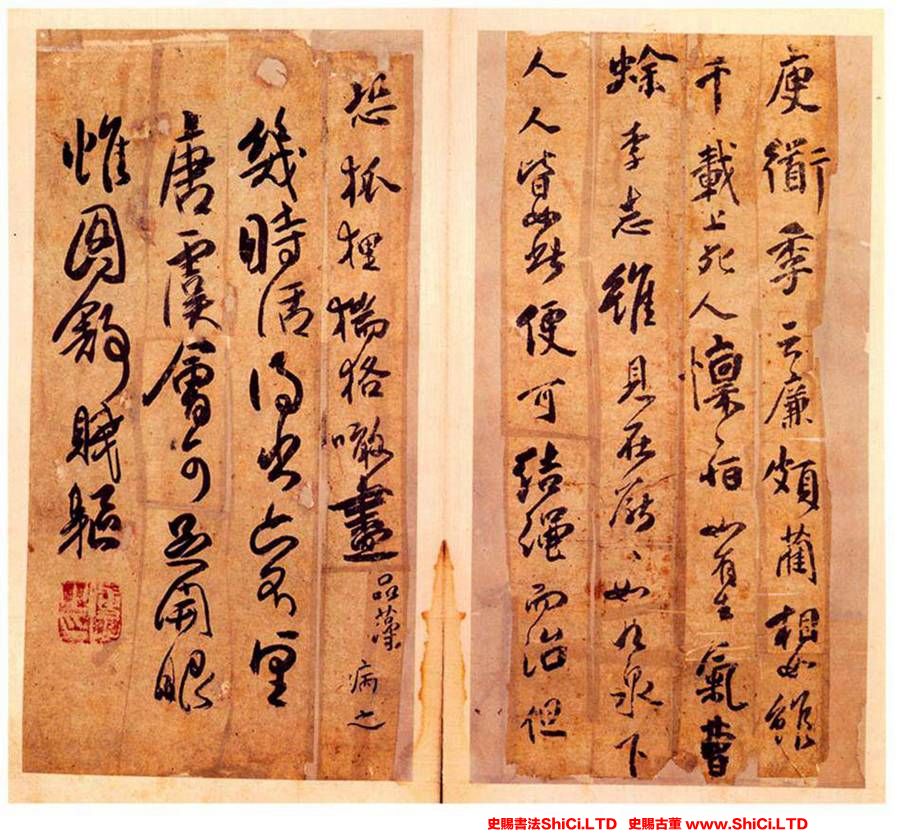 庾衟季云廉頗藺相如雖
千載上死人懍〻恒如有生氣曹
蜍李志雖見在厭〻如九泉下
人人皆如此便可結繩而治但
恐狐狸猯狢噉盡 品藻 病之
幾時活得
唐虞會可足開眼
惟圖 賊軀
史賜書法ShiCi.LTD 史賜古董 www.ShiCi.LTD